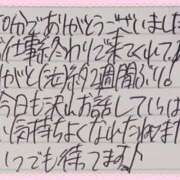 0分でありがとうございました
お仕事終わりで来てくれて
がとう 約2週間ぶり
今日も沢山お話していっぱい
い気持ちよくなれた
いつでも待ってます♪